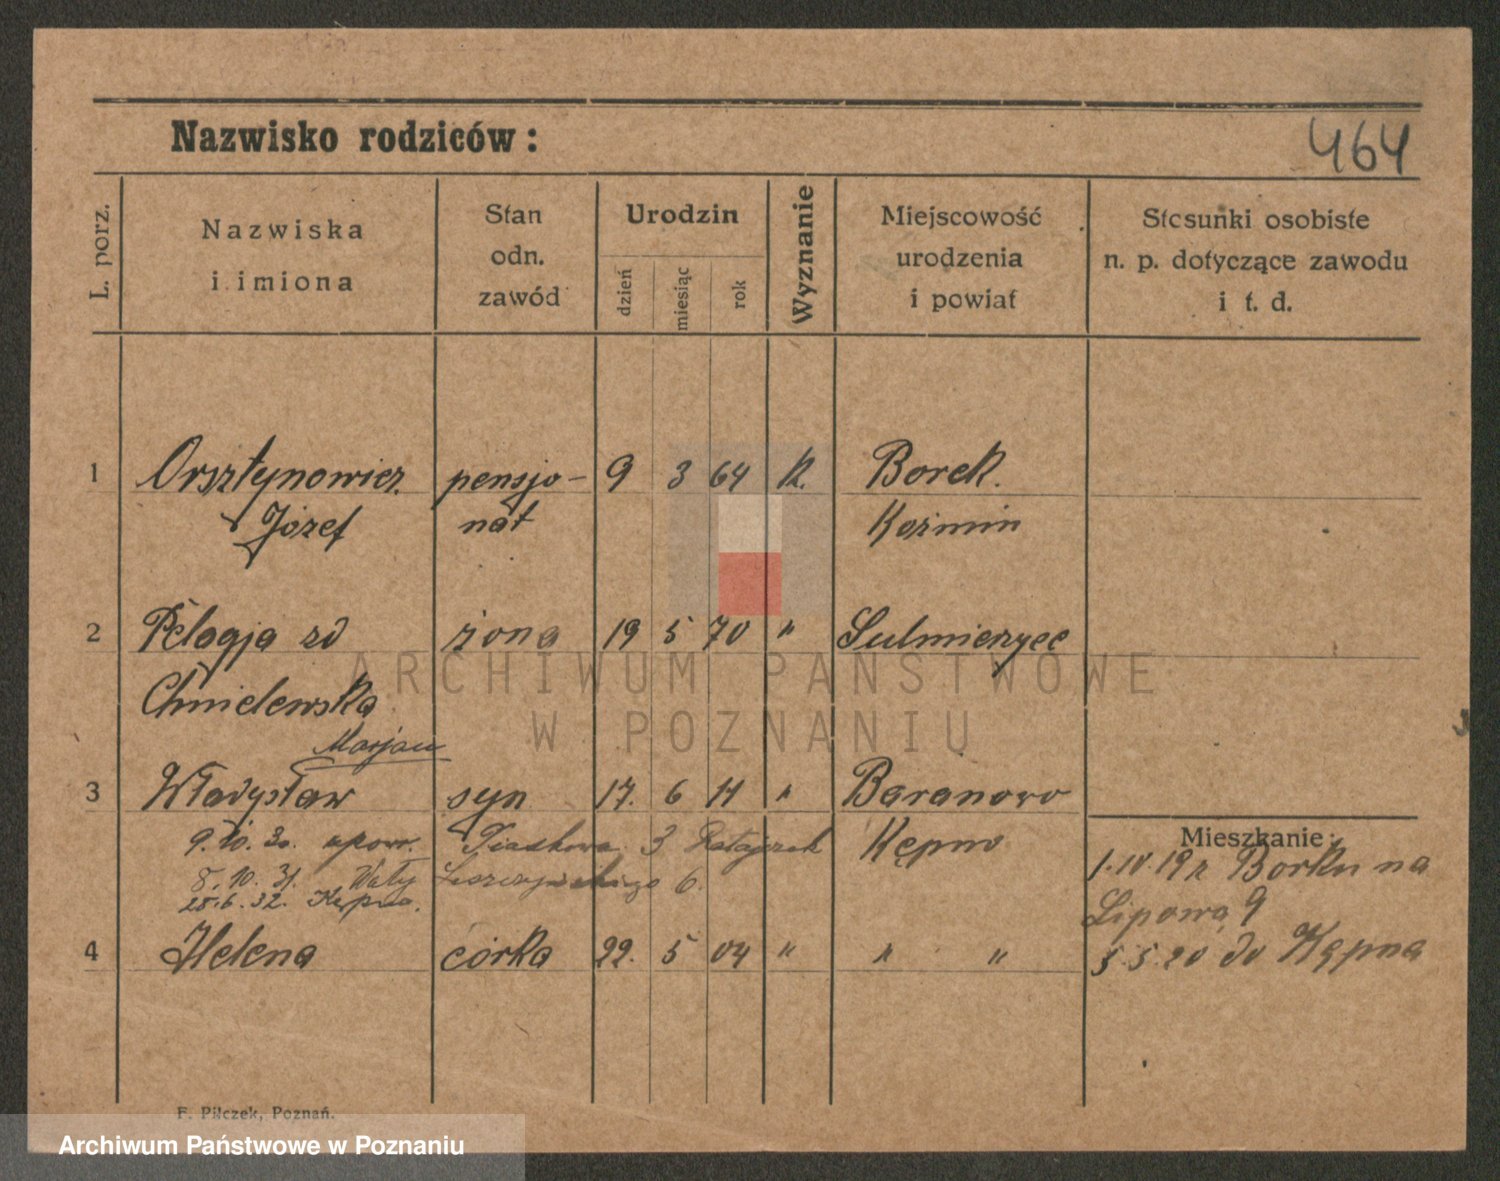 Nazwisko rodziców:
464
L. porz.
Nazwiska
i imiona
Stan
odn.
zawód
Urodzin
dzień
miesiąc
rok
Wyznanie
Miejscowość
urodzenia
i powiat
Stosunki osobiste
n. p. dotyczące zawodu
i t. d.
1 Orsztynowicz pensjo- 9 3 64 K. Borek.
Józef nat Koźmin
2 Pelagja zd żona 19 5 70 " Sulmierzyce
Chmielewska
Marjan
3 Władysław syn 17. 6 11 " Baranowo
9.10.30. Piaskowa 3 Ratajczak Kępno
8.10.31. Wały Leszczyńskiego 6.
25.6.32. Kępno.
4 Helena córka 22. 5 04 " " "
Mieszkanie:
1.IV.19 z Borku na
Lipową 9
5.5.20 do Kępna
F. Pilczek, Poznań.
ARCHIWUM PAŃSTWOWE
W POZNANIU
Archiwum Państwowe w Poznaniu